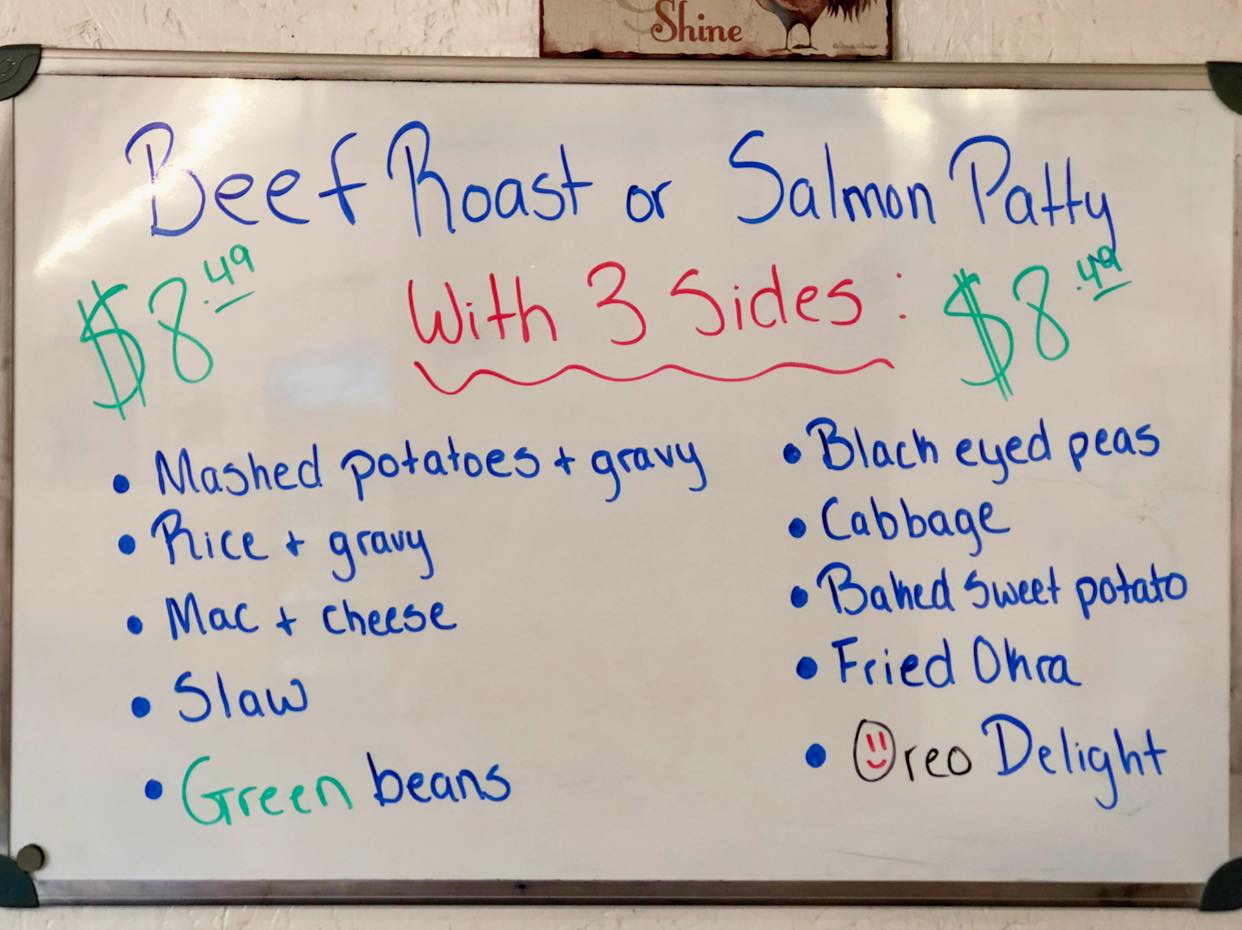 Shine
Beef Roast or Salmon Patty
$8.49 With 3 Sides: $8.49
• Mashed potatoes + gravy
• Rice + gravy
• Mac + cheese
• Slaw
• Green beans
• Black eyed peas
• Cabbage
• Baked sweet potato
• Fried Okra
• Oreo Delight